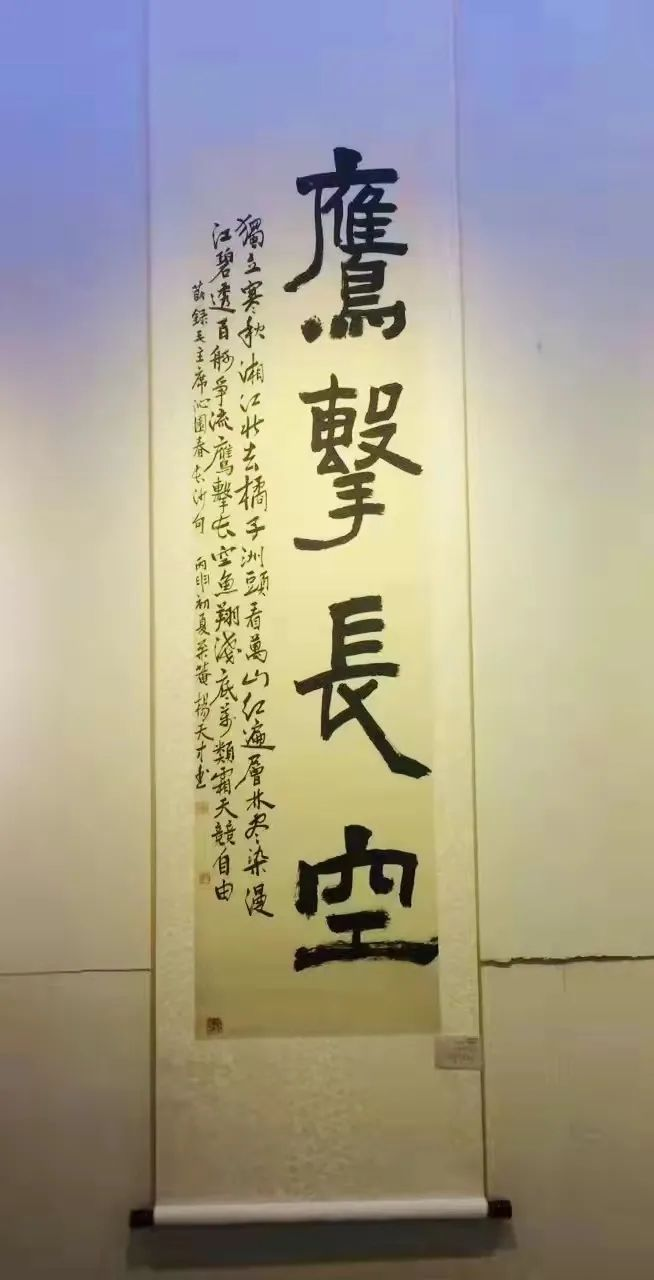 鷹擊長空
獨立寒秋湘江北去橘子洲頭看萬山紅遍層林盡染漫
江碧透百舸爭流鷹擊長空魚翔淺底萬類霜天競自由
節錄毛主席沁園春長沙句 丙申初夏 黃楊天才書